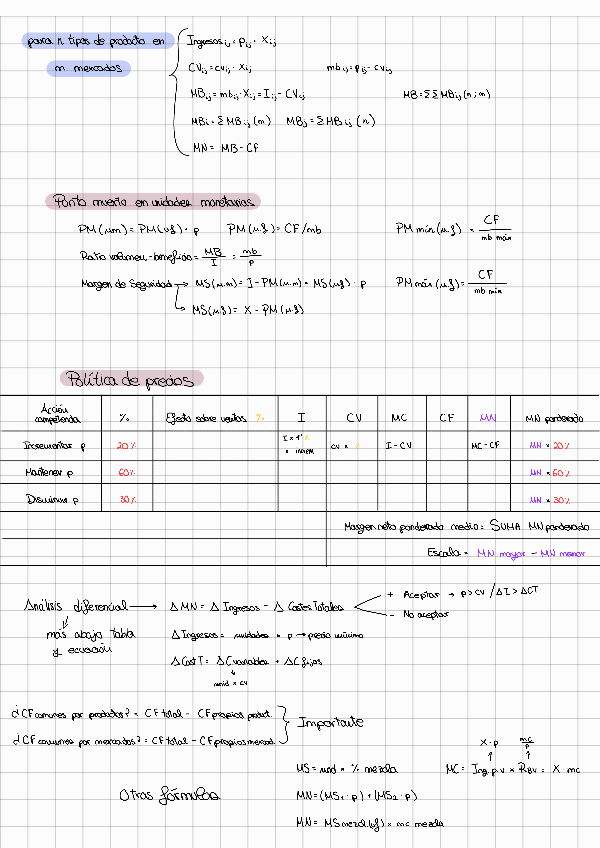 para n tipos de producto en
m mercados
Ingresos ij = pij · Xij
CVij = cvij · Xij mbij = pij - cvij
MBij = mbij · Xij = Iij - CVij MB = ΣΣ MBij (n;m)
MBi = Σ MBij (m) MBj = Σ MBij (n)
MN = MB - CF
Punto muerto en unidades monetarias
PM (u.m) = PM (u.f) · p PM (u.f) = CF/mb PM mín (u.f) = CF / mb máx
Ratio volumen-beneficio = MB / I = mb / p
Margen de Seguridad → MS (u.m) = I - PM (u.m) = MS (u.f) · p PM máx (u.f) = CF / mb mín
→ MS (u.f) = X - PM (u.f)
Política de precios
Acción competencia % Efecto sobre ventas % I CV MC CF MN MN ponderado
Incrementar p 20% I x 1' % CV x % I - CV MC - CF MN x 20%
Mantener p 60% MN x 60%
Disminuir p 30% MN x 30%
Margen neto ponderado medio = SUMA MN ponderado
Escala = MN mayor - MN menor
Análisis diferencial → Δ MN = Δ Ingresos - Δ Costes Totales
+ Aceptar → p > cv / Δ I > Δ CT
- No aceptar
más abajo tabla
y ecuación
Δ Ingresos = unidades x p → precio mínimo
Δ Cost T = Δ C variables + Δ C fijos
unid x cv
¿CF comunes por productos? = CF total - CF propios product.
¿CF comunes por mercados? = CF total - CF propios mercad.
Importante
Otras fórmulas
MS = unid x % mezcla
X · p mc / p
MC = Ing. p.v x RBV = X · mc
MN = (MS1 · p) + (MS2 · p)
MN = MS mezcl (uf) x mc mezcla